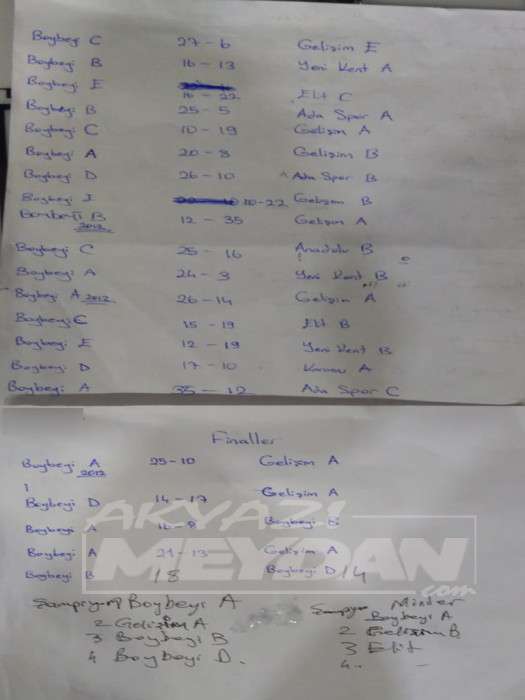 Boybeyi C 27-6 Gelişim E
Boybeyi B 16-13 Yeni Kent A
Boybeyi E 16-22 Elit C
Boybeyi B 25-5 Ada Spor A
Boybeyi C 10-19 Gelişim A
Boybeyi A 20-8 Gelişim B
Boybeyi D 26-10 Ada Spor B
Boybeyi 10-22 Gelişim B
B 2012 12-35 Gelişim A
Boybeyi C 25-16 Anadolu B
Boybeyi A 24-3 Yeni Kent B
Boybeyi A 2012 26-14 Gelişim A
Boybeyi C 15-19 Elit B
Boybeyi E 12-19 Yeni Kent B
Boybeyi D 17-10 A
Boybeyi A 35-12 Ada Spor C
Finaller
Boybeyi A 2012 25-10 Gelişim A
Boybeyi D 14-17 Gelişim A
Boybeyi A 16-8 Boybeyi B
Boybeyi A 21-13 Gelişim A
Boybeyi B 18 Boybeyi D 14
Boybeyi A
2 Gelişim A
3 Boybeyi B
4 Boybeyi D.
Minder
Boybeyi A
2 Gelişim B
3 Elit
4..
AKYAZI
MEYDAN
.com